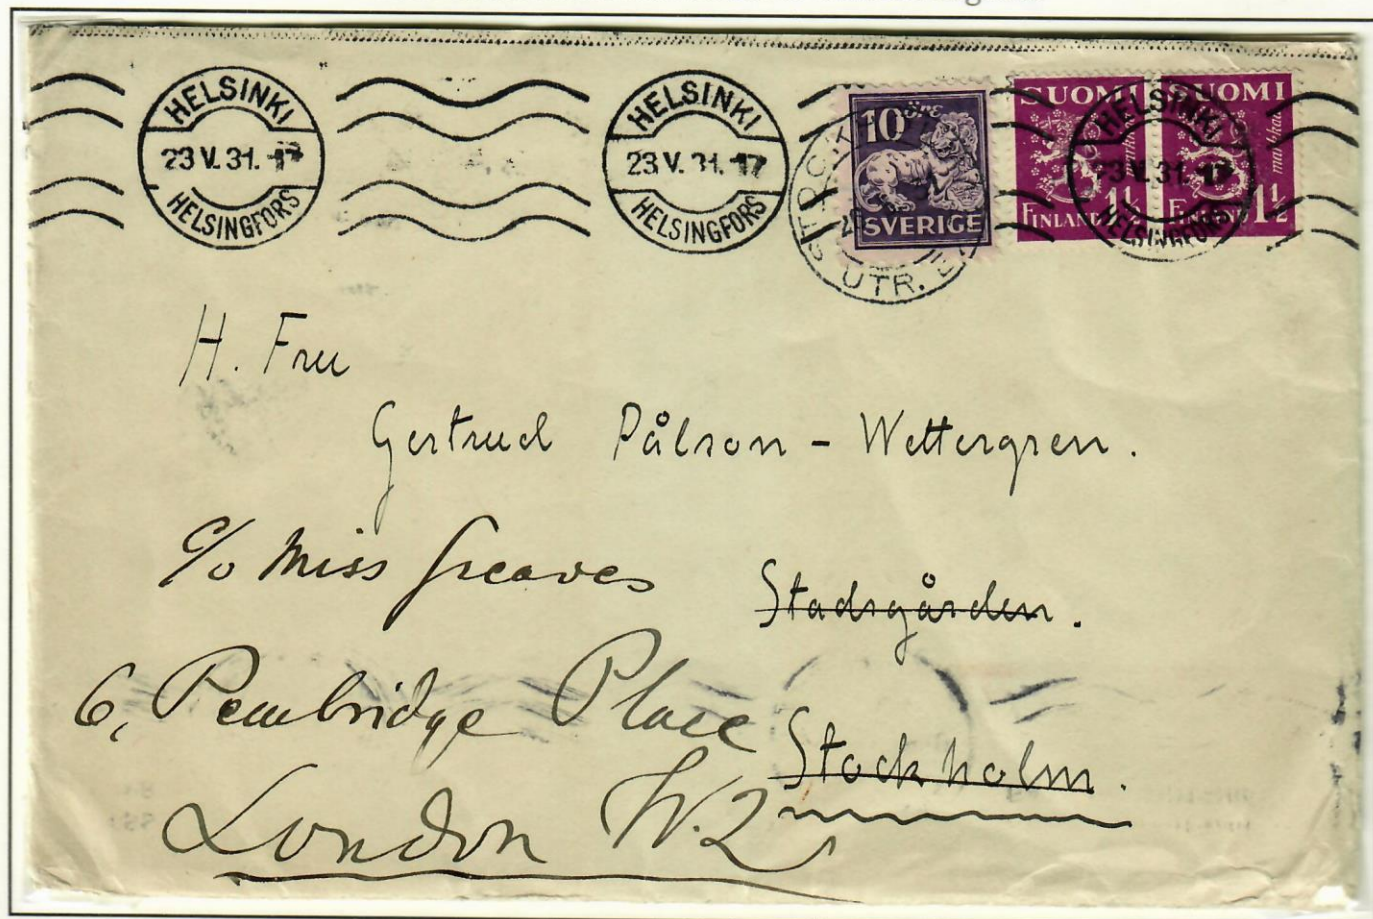 HELSINKI
23 V. 31. 17
HELSINGFORS
HELSINKI
23 V. 31. 17
HELSINGFORS
10 öre
SVERIGE
UTR.
SUOMI
markkaa
FINLAND 1½
SUOMI
markkaa
FINLAND 1½
HELSINKI
23 V. 31. 17
HELSINGFORS
H. Fru
Gertrud Pålson - Wettergren.
c/o Miss Greaves
Stadsgården.
6, Pembridge Place
Stockholm.
London W.2